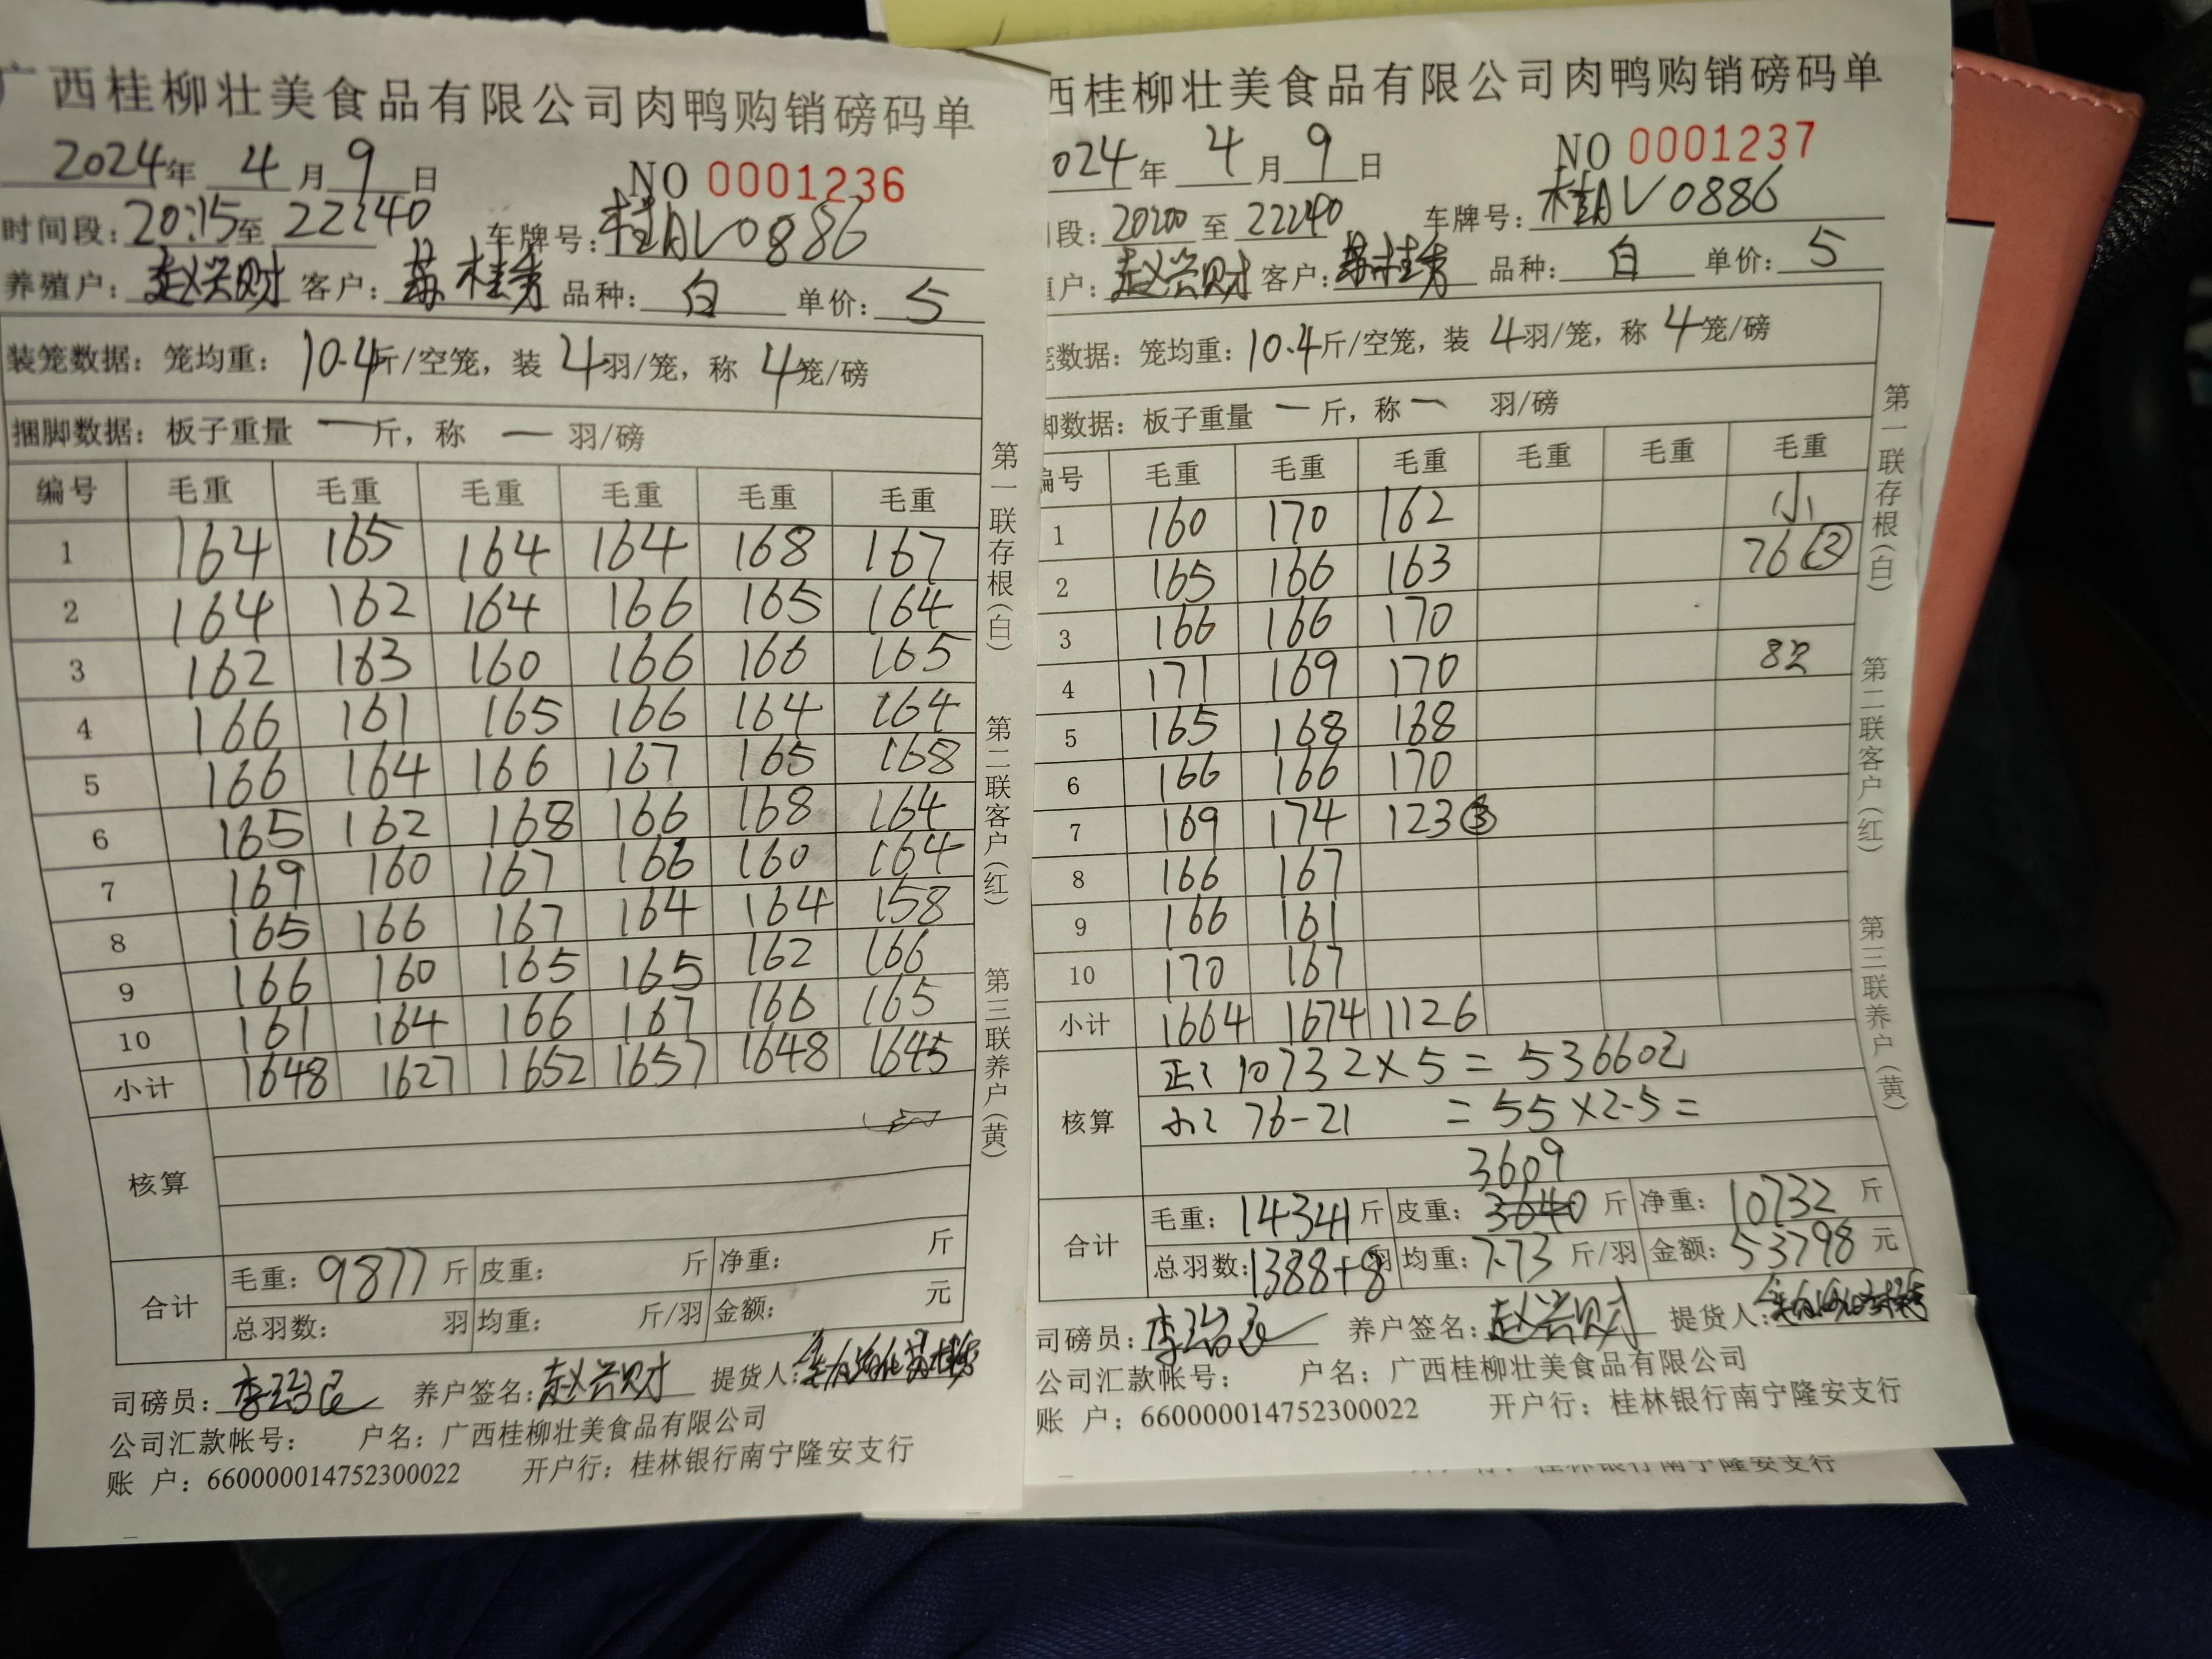 广西桂柳壮美食品有限公司肉鸭购销磅码单
2024年 4月9日 NO 0001236
时间段: 20:15至 22:40 车牌号: 桂AV0886
养殖户: 赵兴财 客户: 苏桂秀 品种: 白 单价: 5
装笼数据: 笼均重: 10.4斤/空笼, 装 4羽/笼, 称 4笼/磅
捆脚数据: 板子重量 一 斤, 称 一 羽/磅
编号 毛重 毛重 毛重 毛重 毛重 毛重
1 164 165 164 164 168 167
2 164 162 164 166 165 164
3 162 163 160 166 166 165
4 166 161 165 166 164 164
5 166 164 166 167 165 168
6 165 162 168 166 168 164
7 169 160 167 166 160 164
8 165 166 167 164 164 158
9 166 160 165 165 162 166
10 161 164 166 167 166 165
小计 1648 1627 1652 1657 1648 1645
核算
合计 毛重: 9877 斤 皮重: 斤 净重: 斤
总羽数: 羽 均重: 斤/羽 金额: 元
司磅员: 养户签名: 赵兴财 提货人:
公司汇款帐号: 户名: 广西桂柳壮美食品有限公司
账 户: 660000014752300022 开户行: 桂林银行南宁隆安支行
第一联存根(白) 第二联客户(红) 第三联养户(黄)
西桂柳壮美食品有限公司肉鸭购销磅码单
024年 4月9日 NO 0001237
段: 20:00 至 22:40 车牌号: 桂AV0886
户: 赵兴财 客户: 苏桂秀 品种: 白 单价: 5
笼数据: 笼均重: 10.4斤/空笼, 装 4羽/笼, 称 4笼/磅
脚数据: 板子重量 一 斤, 称 一 羽/磅
编号 毛重 毛重 毛重 毛重 毛重 毛重
1 160 170 162 小
2 165 166 163 76②
3 166 166 170
4 171 169 170 8只
5 165 168 168
6 166 166 170
7 169 174 123③
8 166 167
9 166 161
10 170 167
小计 1664 1674 1126
核算 正: 10732×5=53660元
小: 76-21 =55×2.5=
3609
合计 毛重: 14341斤 皮重: 3640斤 净重: 10732 斤
总羽数: 1388+8羽 均重: 7.73 斤/羽 金额: 53798 元
司磅员: 养户签名: 赵兴财 提货人:
公司汇款帐号: 户名: 广西桂柳壮美食品有限公司
账 户: 660000014752300022 开户行: 桂林银行南宁隆安支行
第一联存根(白) 第二联客户(红) 第三联养户(黄)
开户行: 桂林银行南宁隆安支行